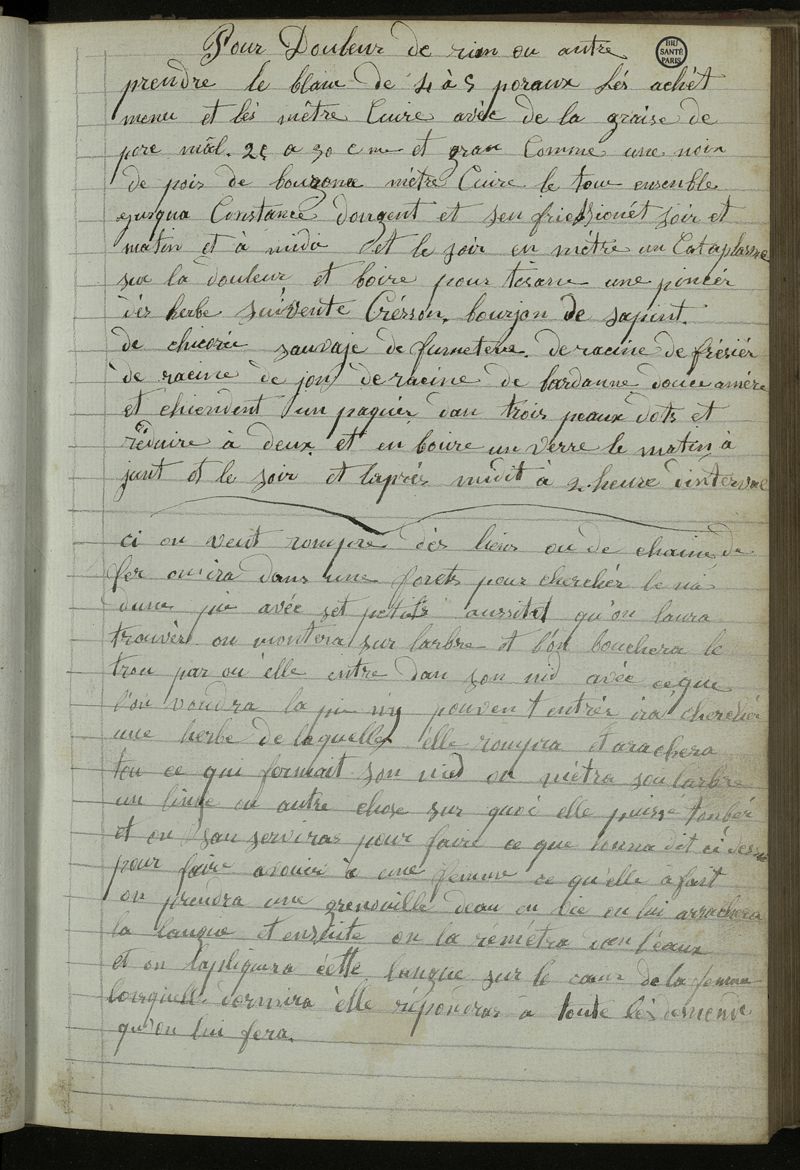 Pour Douleur de rien ou autre
BIU
SANTÉ
PARIS
prendre le blanc de 4 à 5 poraux Lés achét
menu et lés mêtre Cuire avèc de la graise de
porc mâl. 25 a 30 c me et gran Comme une noix
de poix de bourgone mètre Cuire le tout ensenble
jusqua Constance dongent et sen frictionét soir et
matin et à midi et le soir en métre un Cataplasme
sur la douleur et boire pour tisane une pincér
dés herbe suivente Crésson. bourjon de sapint.
de chicorée sauvaje de fumeterre. de racine de frésiér
de racine de jon de racine de bardanne douce amére
et chiendent un paquér dan trois peaux dots et
réduire à deux et en boire un verre le matin à
junt et le soir et laprés midit à 2 heure dinterval
ci on veut rompre dés liens ou de chaine de
fer on ira dans une forets pour cherchér le ni
dune pie avéc set petits aussitot qu'on laura
trouvér on montera sur larbre et l'on bouchera le
trou par ou elle entre dan son nid avéc ceque
l'on voudra la pie ny pouvent entrér ira cherchér
une herbe de laquelle elle rompra et arachera
tou ce qui formait son nied on métra sou larbre
un linge ou autre chose sur quoi elle puisse tonbér
et on san servira pour faire ce que nouna dit ci dessu
pour faire avouér à une femme ce qu'elle à fait
on prendra une grenouille deau en vie on lui arrachera
la langue et ensuite on la rémétra dan l'eaux
et on lapliquera cétte langue sur le cœur de la femme
lorsquelle dormira élle répondras a toute lés demende
qu'on lui fera.